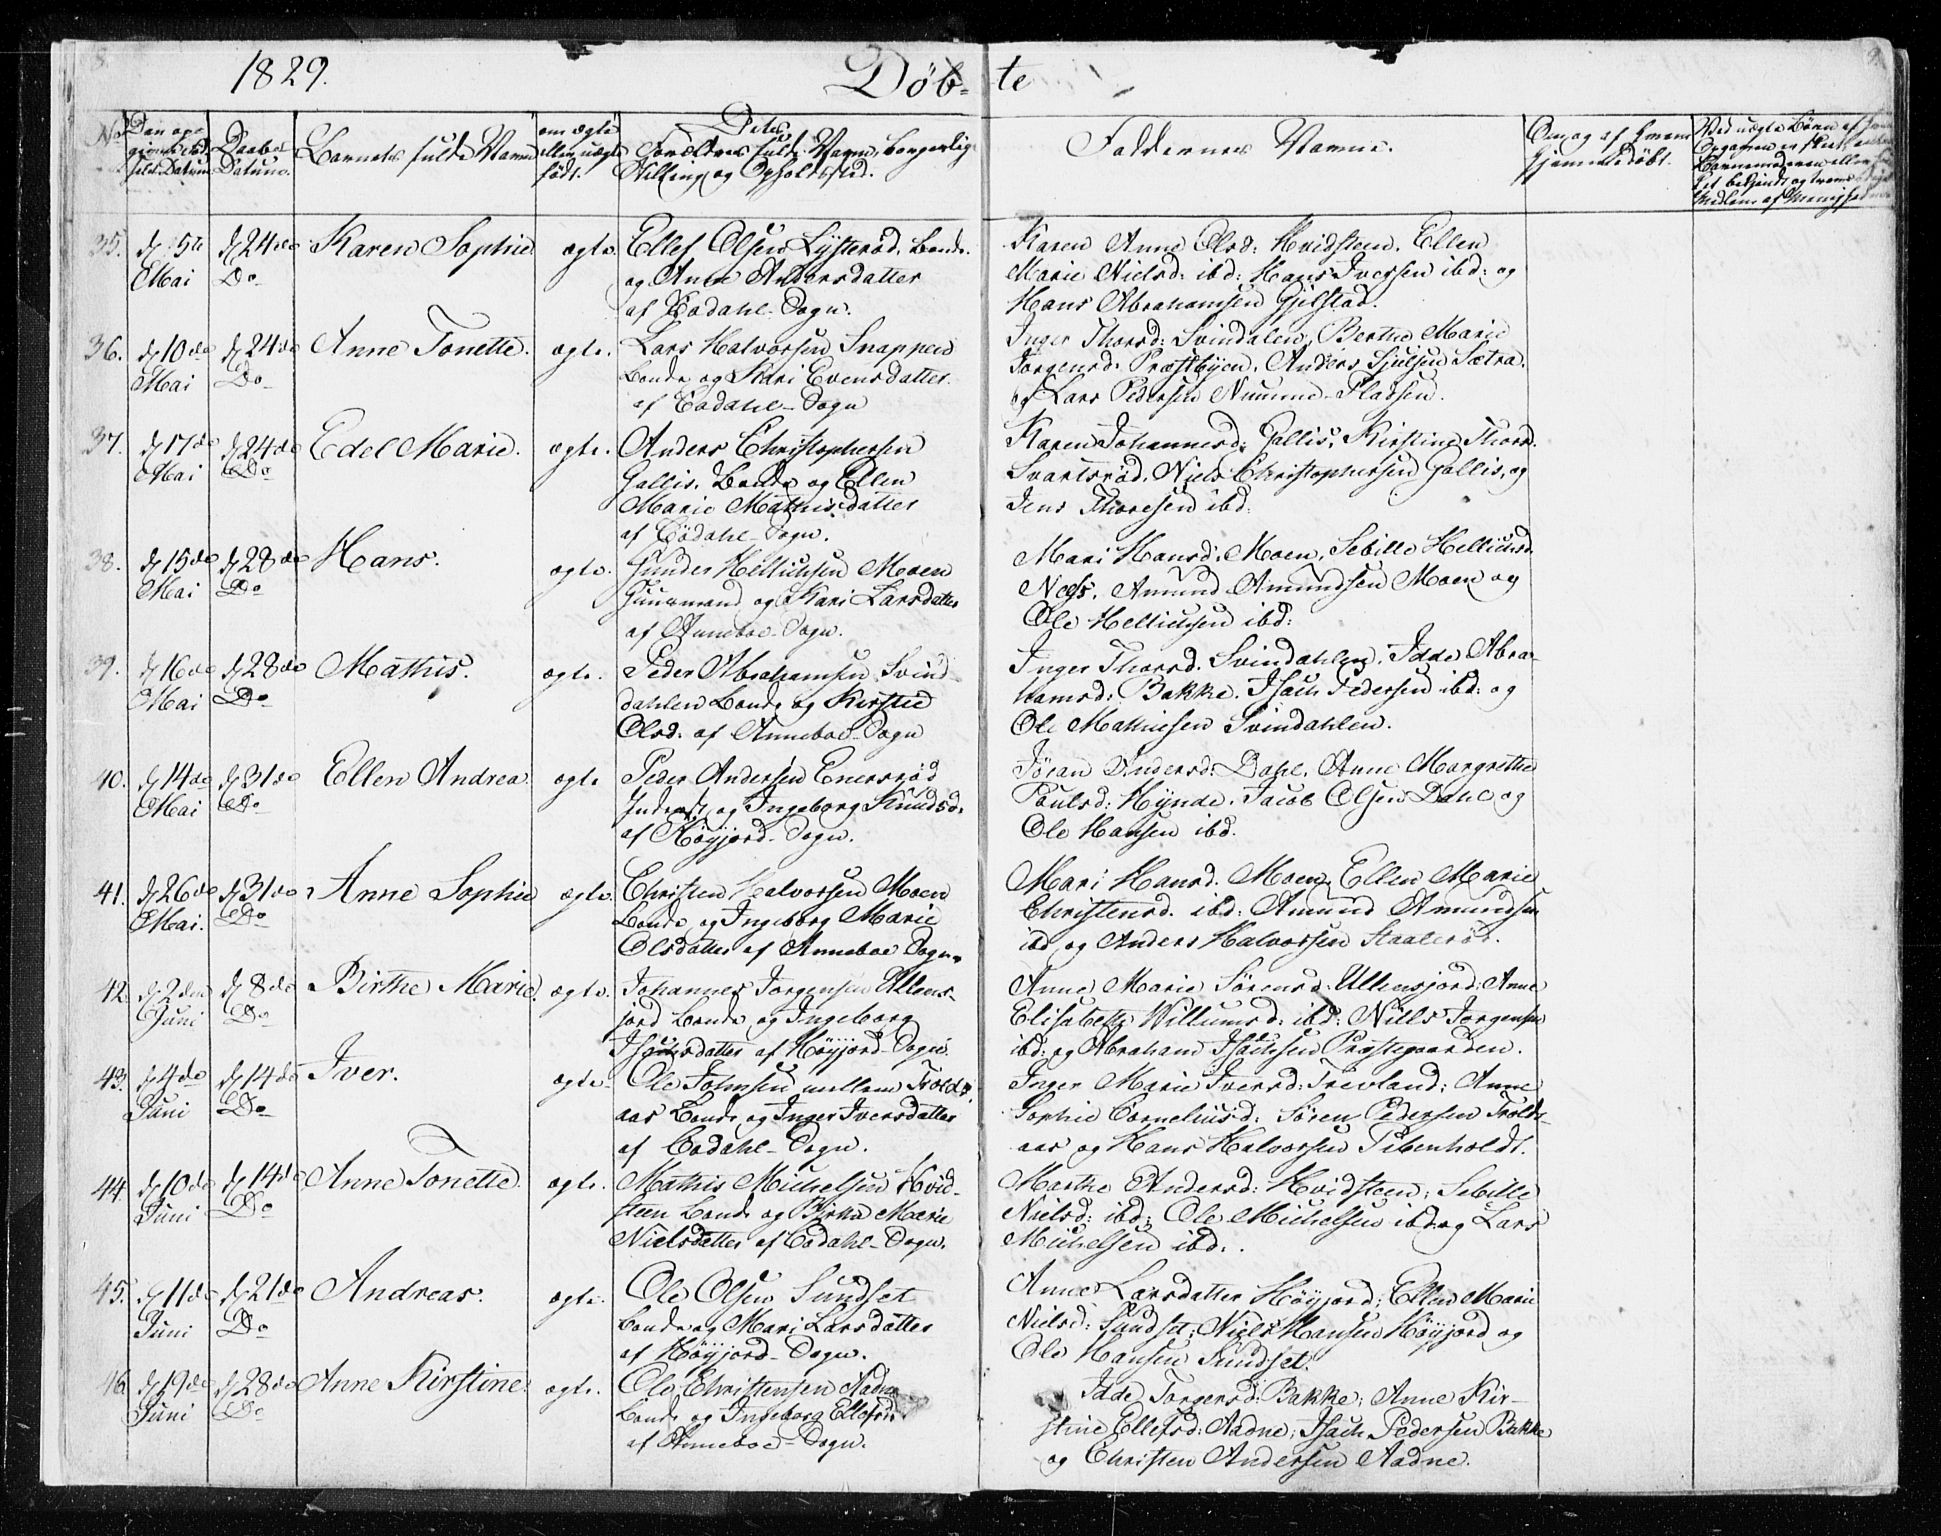 1829.
Døb-
te
No
Daabs
Datum.
Barnets fulde Navn
om ægte
eller uægte
født.
Forældres fulde Navn, borgerlig
Stilling og Opholdsted.
Faddernes Navne.
hjemmedøbt.
35. d 5te Mai d 24de Do Karen Sophie ægte.
Ellef Olsen Lysterød, Bonde
og Anne Andersdatter
af Codahl-Sogn.
Karen Anne Olsd: Hvidsteen, Ellen
Marie Nielsd: ibd: Hans Iversen ibd: og
Hans Abrahamsen Gjelstad.
36. d 10de Mai d 24de Do Anne Tonette. ægte.
Lars Halvorsen Snappen
Bonde og Kari Evensdatter
af Codahl-Sogn
Inger Thorsd: Svindalen, Berthe Marie
Jørgensd: Præstbyen, Anders Sjulsen Sætra,
og Lars Pedersen Pladsen.
37. d 17de Mai d 24de Do Edel Marie. ægte.
Anders Christophersen
Gallis, Bonde og Ellen
Marie Mathisdatter
af Codahl-Sogn.
Karen Johannesd: Gallis, Kirstine Thorsd:
Svartsrød, Niels Christophersen Gallis, og
Jens Thoresen ibd:
38. d 15de Mai d 28de Do Hans. ægte.
Gunder Hellichsen Moen
Huusmand og Kari Larsdatter
af Anneboe-Sogn.
Mari Hansd: Moen, Sebille Hellichsd:
Næss, Amund Amundsen Moen og
Ole Hellichsen ibd:
39. d 16de Mai d 28de Do Mathis. ægte.
Peder Abrahamsen Svind-
dahlen Bonde og Kirstie
Olsd: af Anneboe-Sogn
Inger Thorsd. Svindahlen, Idde Abra-
hamsd: Bakke, Isach Pedersen ibd: og
Ole Mathiesen Svindahlen.
40. d 14de Mai d 31de Do Ellen Andrea. ægte
Peder Andersen Enersrød
Inderst og Ingeborg Knudsd.
af Høyjord-Sogn.
Jøran Andersd: Dahl, Anne Margrethe
Poulsd: Hynde, Jacob Olsen Dahl og
Ole Hansen ibd.
41. d 26de Mai. d 31de Do Anne Sophie ægte.
Christen Halvorsen Moen
Bonde og Ingeborg Marie
Olsdatter af Anneboe Sogn.
Mari Hansd. Moen, Ellen Marie
Christensd. ibd: Amund Amundsen
ibd og Anders Halvorsen Staalerød.
42. d 2den Juni d 8de Do Birthe Marie. ægte.
Johannes Jørgensen Ullens-
jord Bonde og Ingeborg
Isachsdatter af Høyjord-Sogn.
Anne Marie Sørensd. Ullensjord: Anne
Elisabeth Willumsd: ibd: Nills Jørgensen
ibd: og Abraham Isachsen Præstegaarden.
43. d 4de Juni d 14de Do Iver. ægte.
Ole Johnsen mellem Trolds-
aas Bonde og Inger Iversdatter
af Codahl-Sogn.
Inger Marie Iversd: Trevland: Anne
Sophie Corneliusd: Søren Pedersen Trolds-
aas og Hans Halvorsen Pibenholdt.
44. d 10de Juni d 14de Do Anne Tonette. ægte.
Mathis Michelsen Hvid-
steen Bonde og Birthe Marie
Nielsdatter af Codahl-Sogn.
Marthe Andersd: Hvidsteen; Sebille
Nielsd: ibd; Ole Michelsen ibd og Lars
Michelsen ibd:.
45. d 11de Juni d 21de Do Andreas. ægte.
Ole Olsen Sundset
Bonde og Mari Larsdatter
af Høyjord-Sogn.
Anne Larsdatter Høyjord; Ellen Marie
Nielsd: Sundset; Niels Hansen Høyjord og
Ole Hansen Sundset.
46. d 19de Juni d 28de Do Anne Kirstine. ægte.
Ole Christensen Aadne
Bonde og Ingeborg Ellefsd.
af Anneboe-Sogn.
Idde Torgersd: Bakke; Anne Kir-
stine Ellefsd: Aadne; Isach Pedersen Bakke
og Christen Andersen Aadne.